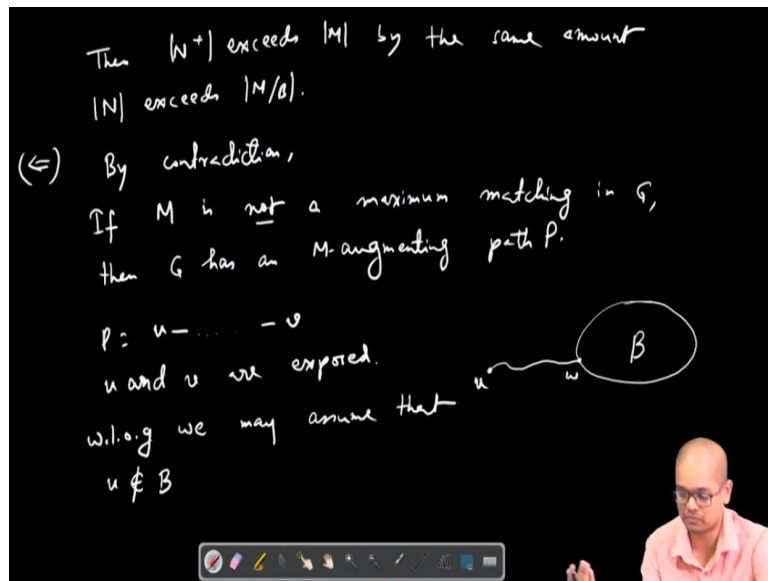 Then |N⁺| exceeds |M| by the same amount
|N| exceeds |M/B|.
(⇐) By contradiction,
If M is not a maximum matching in G,
then G has an M-augmenting path P.
P: u — .... — v
u and v are exposed.
w.l.o.g we may assume that
u ∉ B
u w B
AI